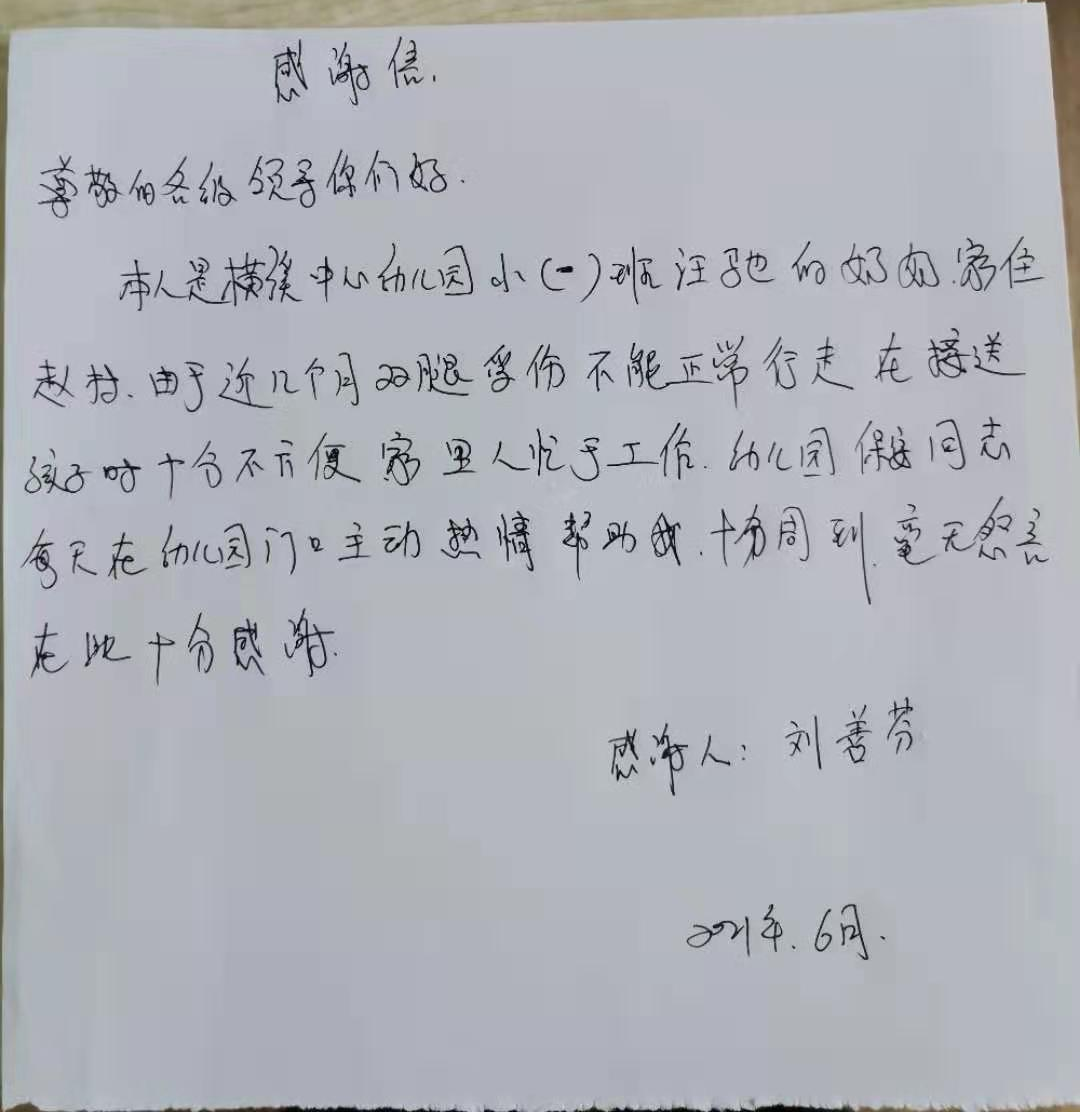 感谢信.
尊敬的各级领导你们好.
本人是横溪中心幼儿园小(一)班汪驰的奶奶.家住
赵村.由于近几个月双腿受伤不能正常行走在接送
孩子时十分不方便家里人忙于工作.幼儿园保安同志
每天在幼儿园门口主动热情帮助我.十分周到.毫无怨言
在此十分感谢.
感谢人:刘善芬
2021年.6月.